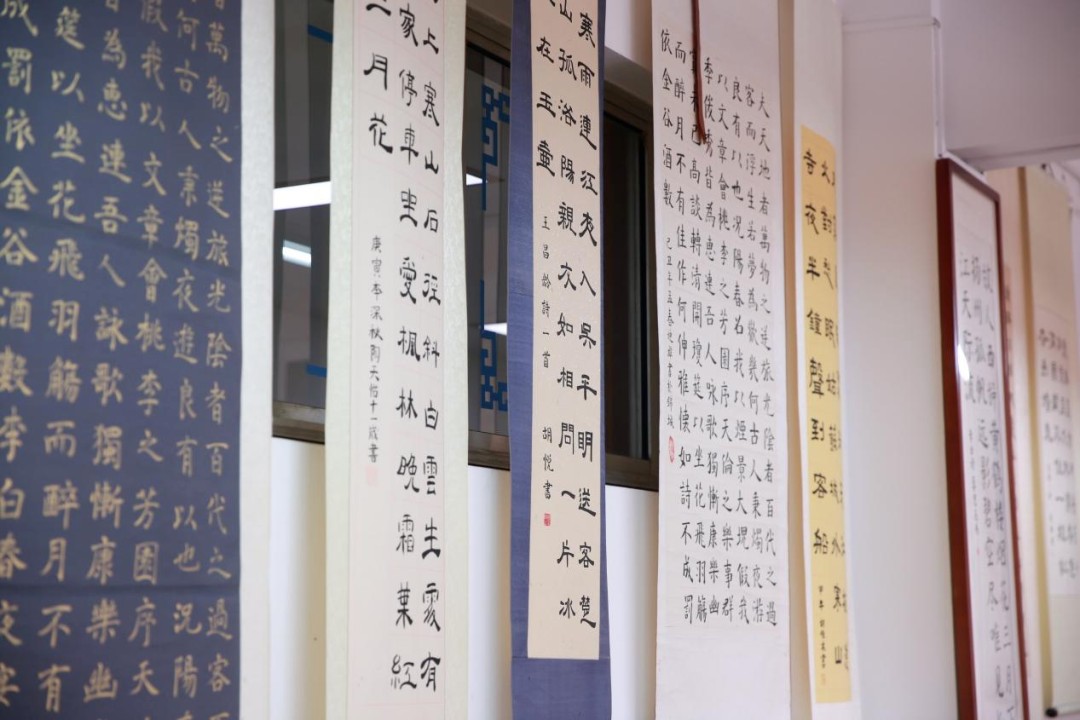 萬物之逆旅光陰者百代之過客
何古人秉燭夜遊良有以也況陽
假我以文章會桃李之芳園序天
皆為惠連吾人詠歌獨慚康樂幽
筵以坐花飛羽觴而醉月不有
成罰依金谷酒數李白春夜宴
上寒山石徑斜白雲生處有
家停車坐愛楓林晚霜葉紅
二月花
庚寅年深秋周天佑十一歲書
寒雨連江夜入吳平明送客楚
山孤洛陽親友如相問一片冰
在玉壺
王昌齡詩一首 胡悅書
夫天地者萬物之逆旅光陰者百代之過
客而浮生若夢為歡幾何古人秉燭夜游
良有以也況陽春召我以煙景大塊假我
以文章會桃李之芳園序天倫之樂事群
季俊秀皆為惠連吾人詠歌獨慚康樂幽
賞未已高談轉清開瓊筵以坐花飛羽觴
而醉月不有佳作何伸雅懷如詩不成罰
依金谷酒數
火對愁眠姑蘇城外寒山
寺夜半鐘聲到客船
故人西辭黃鶴樓煙花三月下
揚州孤帆遠影碧空盡唯見
江天際流